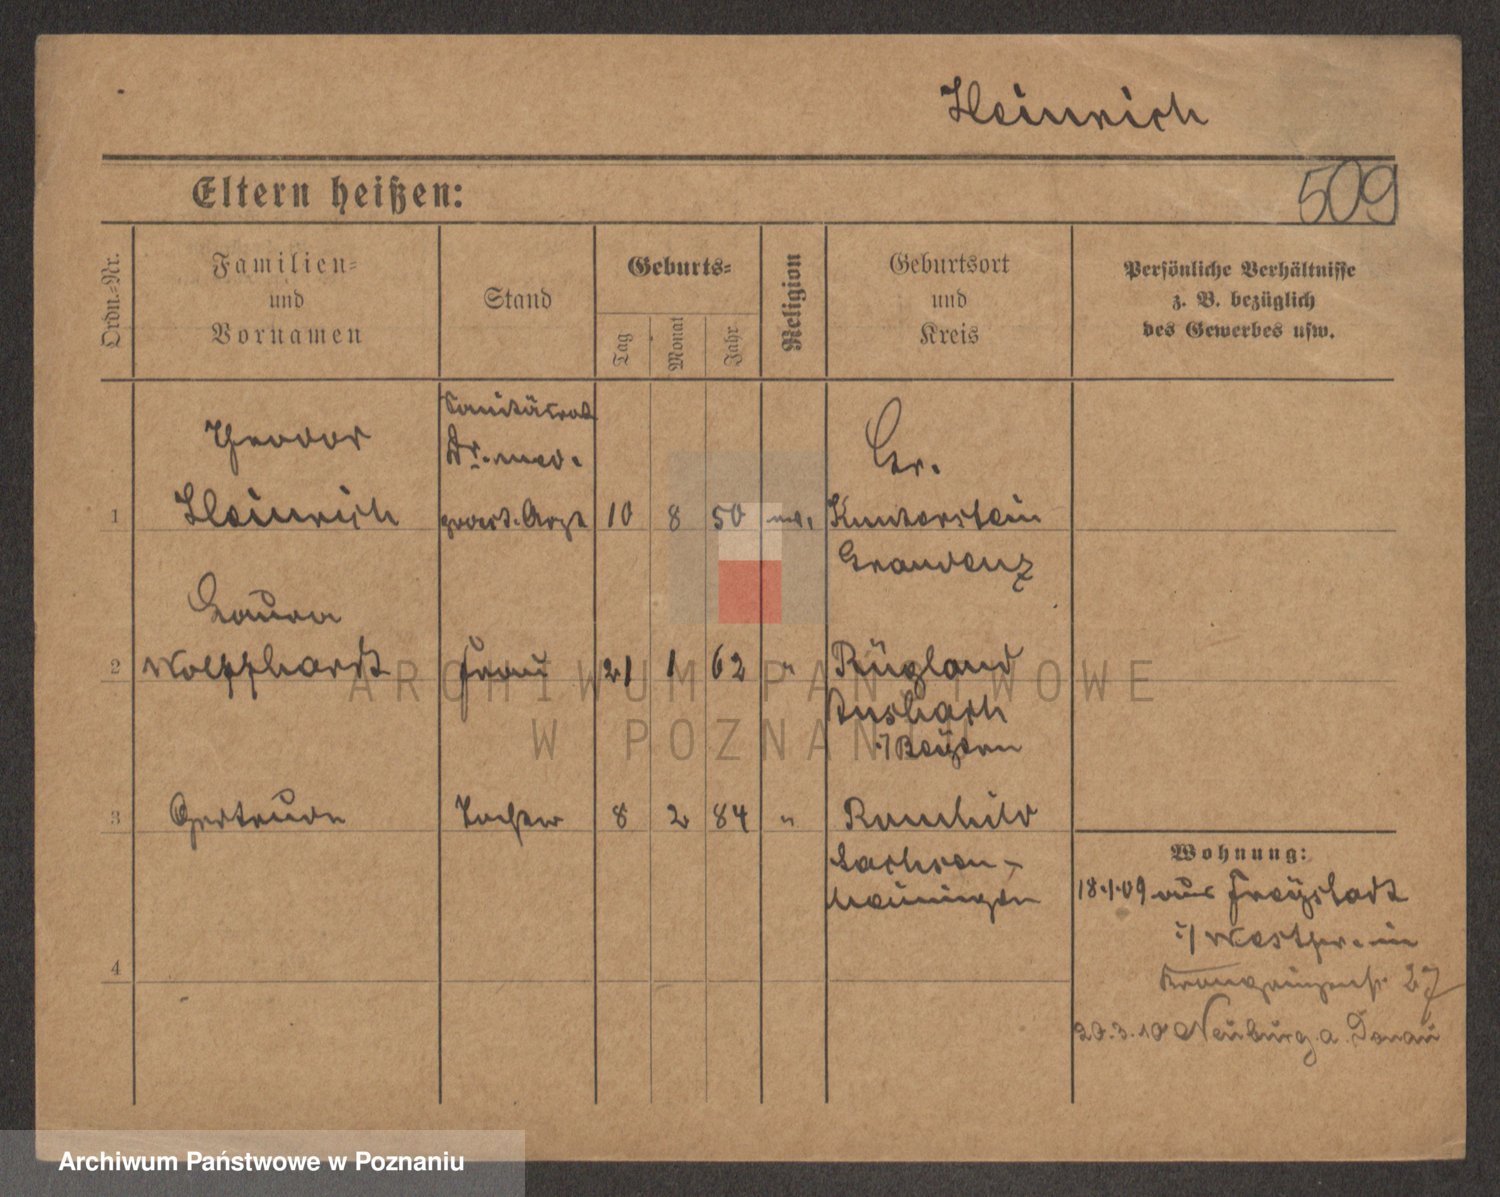 Heinrich
Eltern heißen:
509
Ordn.-Nr.
Familien-
und
Vornamen
Stand
Geburts-
Tag
Monat
Jahr
Religion
Geburtsort
und
Kreis
Persönliche Verhältnisse
z. B. bezüglich
des Gewerbes usw.
1
Theodor
Heinrich
Sanitätsrat
Dr. med.
pract. Arzt
10
8
50
ev.
Gr.
Kunterstein
Graudenz
2
Laura
Wolffhardt
Frau
21
1
62
"
Rügland
Ansbach
i/Bayern
3
Gertrude
Tochter
8
2
84
"
Römhild
Sachsen-
Meiningen
4
Wohnung:
18.1.09 aus Freystadt
i/ Westpr. in
Kronprinzenstr. 27
20.3.10 Neuburg a. Donau
ARCHIWUM PAŃSTWOWE
W POZNANIU
Archiwum Państwowe w Poznaniu